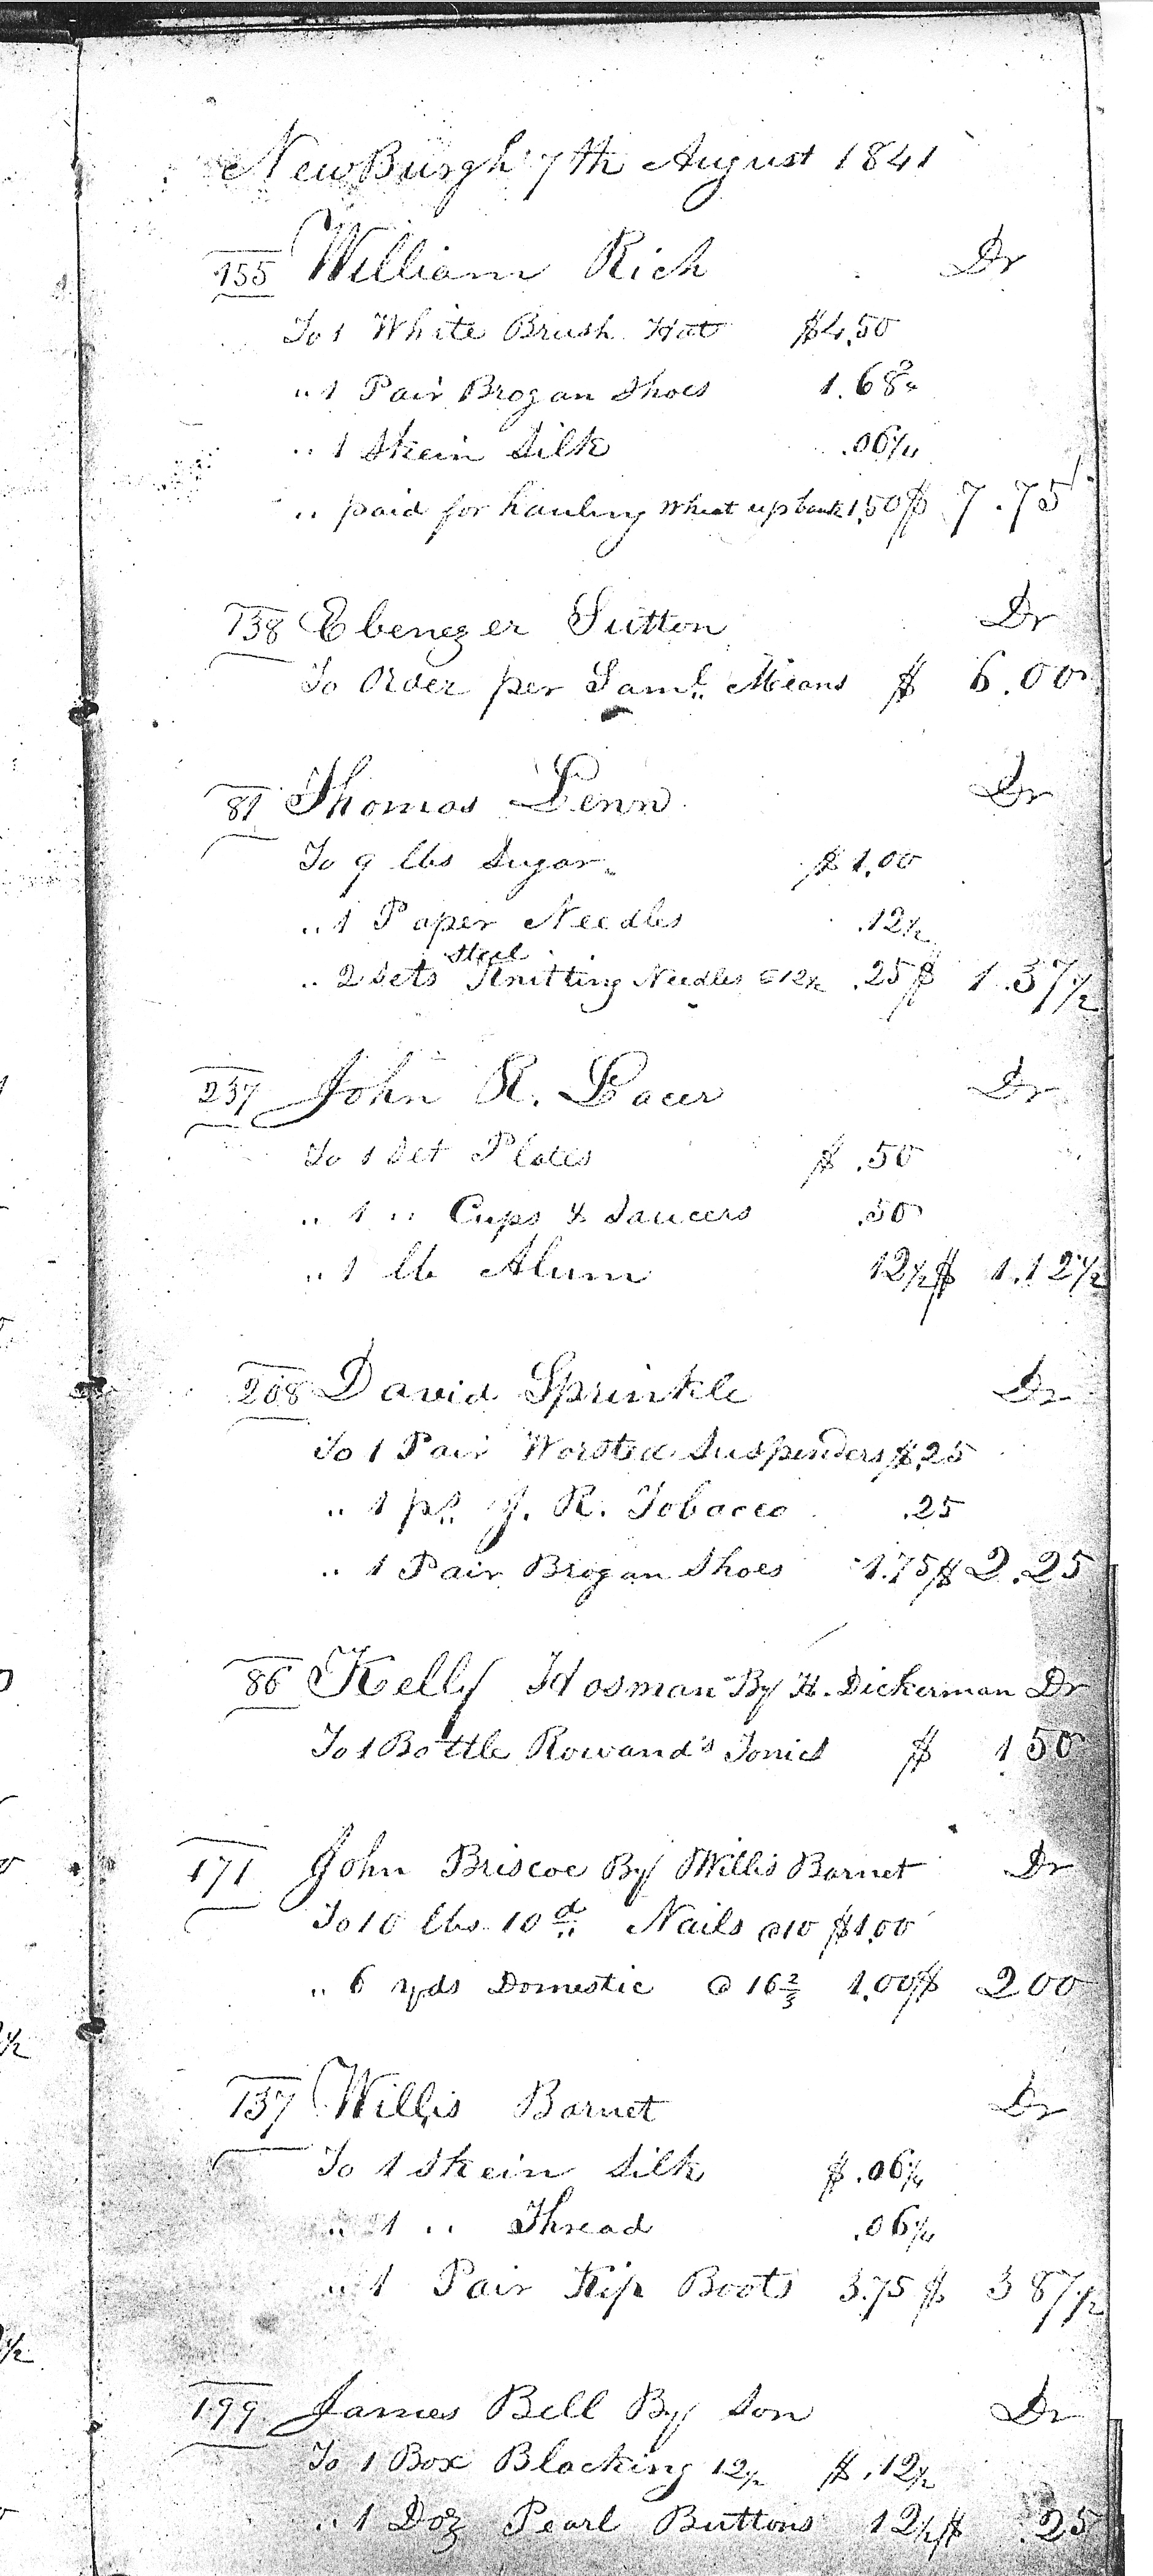 NewBurgh 7th August 1841
155 William Rich Dr
To 1 White Brush Hat $4.50
" 1 Pair Brogan Shoes 1.68¾
" 1 Skein Silk .06¼
" paid for hauling Wheat up bank 1.50 $ 7.75
138 Ebenezer Sutton Dr
To Order per Saml. Means $ 6.00
81 Thomas Fenn Dr
To 9 lbs Sugar $ 1.00
" 1 Paper Needles .12½
" 2 Sets Steel Knitting Needles @12½ .25 $ 1.37½
237 John R. Dr
To 1 Set Plates $ .50
" 1 " Cups & Saucers .50
" 1 lb Alum 12½ $ 1.12½
208 David Sprinkle Dr
To 1 Pair Worsted Suspenders $.25
" 1 pd. J. R. Tobacco .25
" 1 Pair Brogan Shoes 1.75 $ 2.25
86 Kelly Hosman By H. Dickerman Dr
To 1 Bottle Rowand's Tonics $ 1 50
171 John Briscoe By Willis Barnet Dr
To 10 lbs 10d Nails @10 $1.00
" 6 yds Domestic @ 16⅔ 1.00 $ 2 00
137 Willis Barnet Dr
To 1 Skein Silk $ .06¼
" 1 " Thread .06¼
" 1 Pair Kip Boots 3.75 $ 3 87½
199 James Bell By Son Dr
To 1 Box Blacking 12½ $ .12½
" 1 Doz Pearl Buttons 12½ $ .25